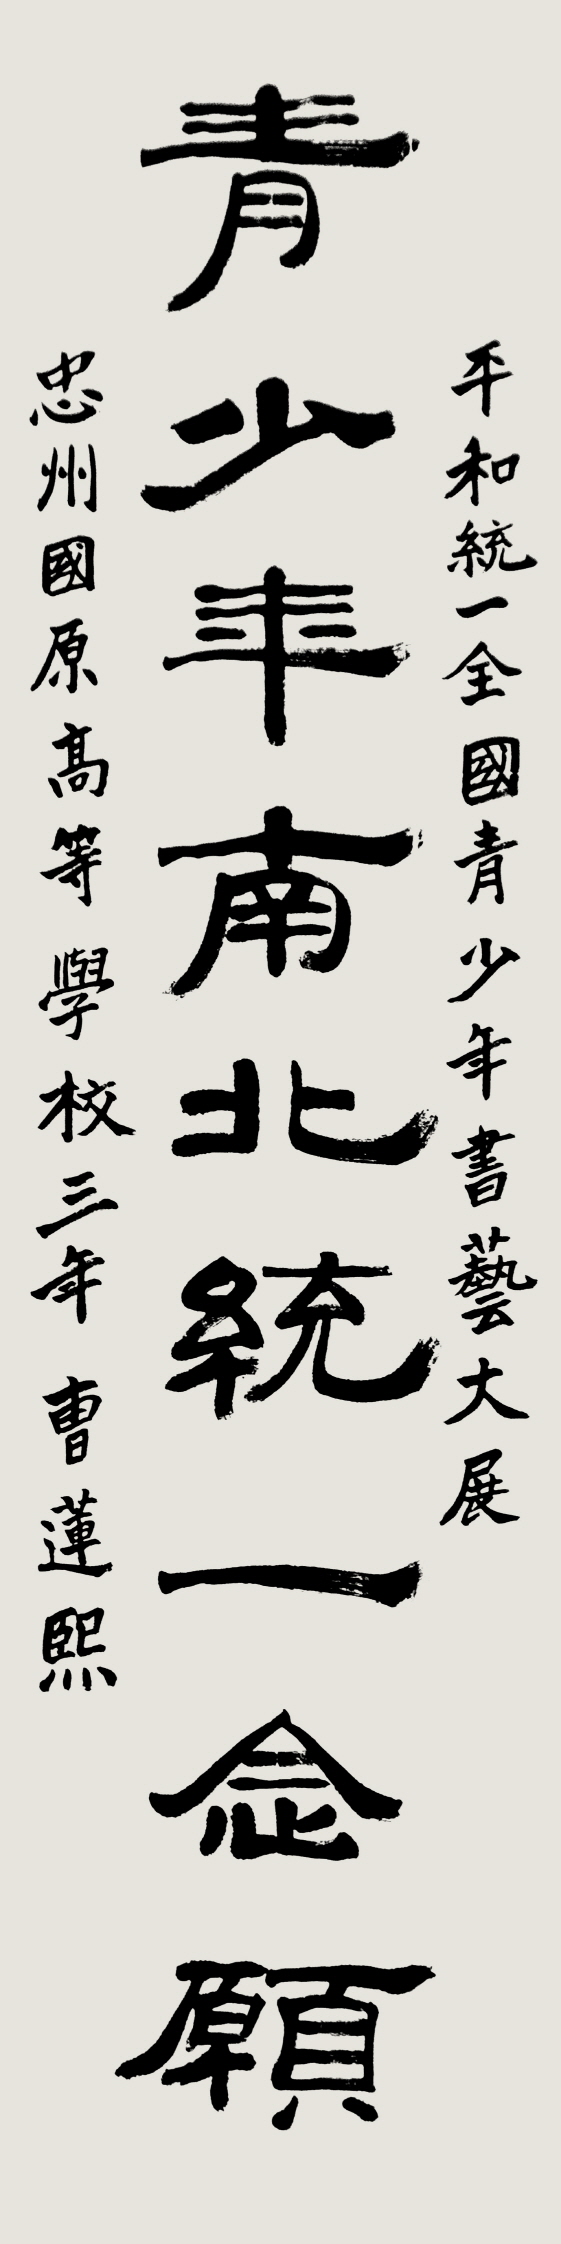 平和統一全國青少年書藝大展
青少年南北統一念願
忠州國原高等學校三年 曺蓮熙